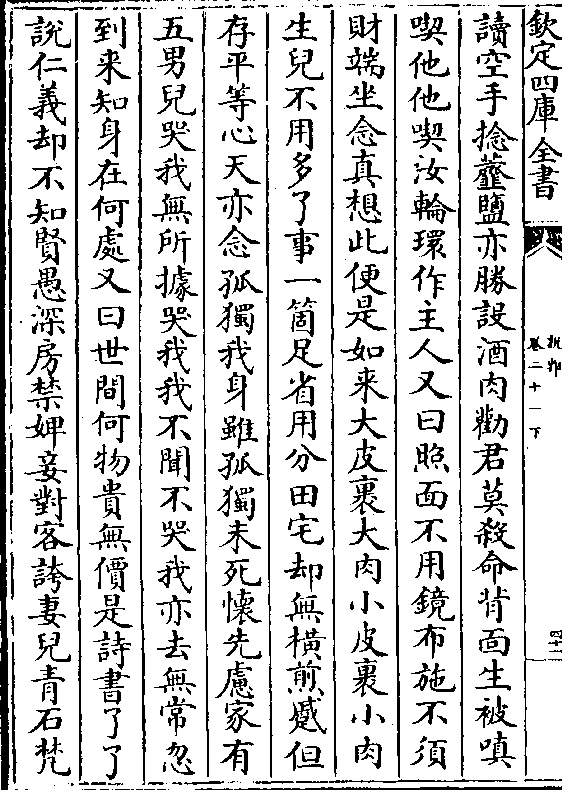 欽定四庫全書
說郛
卷二十一下
四十一
讀空手捻虀鹽亦勝設酒肉勸君莫殺命背面生被嗔
喫他他喫汝輪環作主人又曰照面不用鏡布施不須
財端坐念真想此便是如来大皮裹大肉小皮裹小肉
生兒不用多了事一箇足省用分田宅却無橫煎蹙但
存平等心天亦念孤獨我身雖孤獨未死懷先慮家有
五男兒哭我無所據哭我我不聞不哭我亦去無常忽
到来知身在何處又曰世間何物貴無價是詩書了了
說仁義却不知賢愚深房禁婢妾對客誇妻兒青石甃